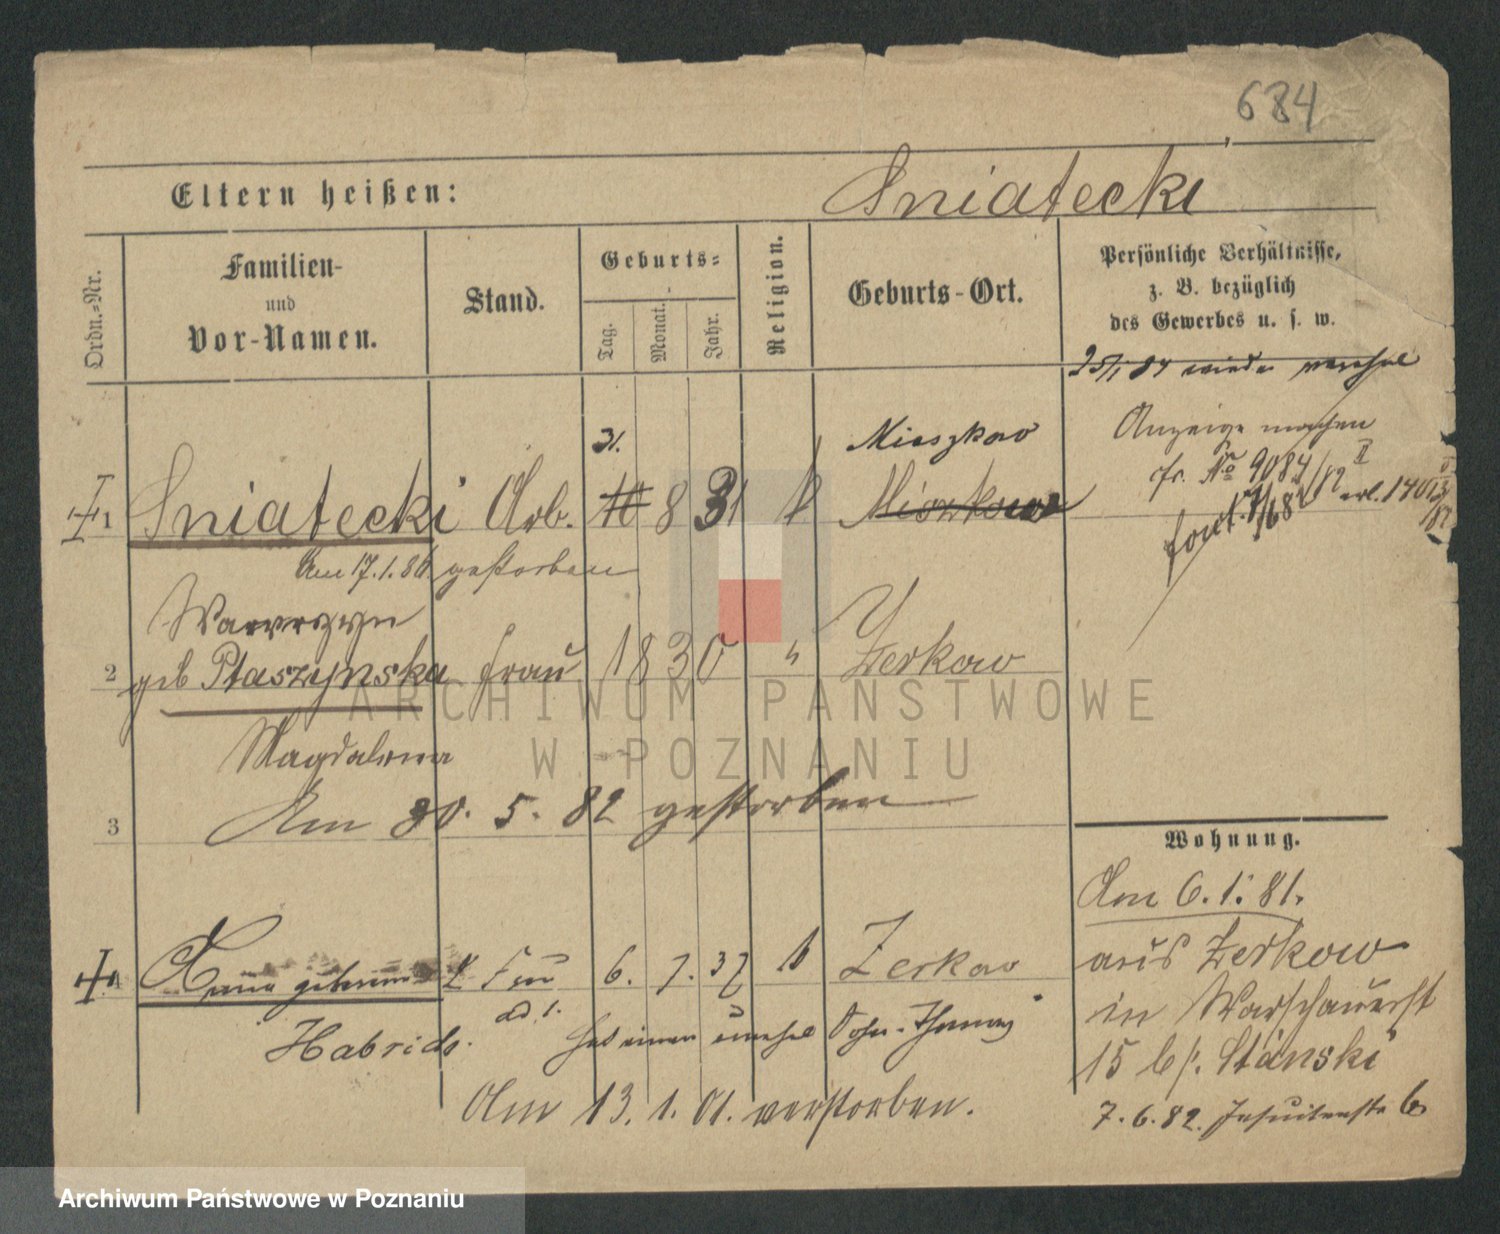 684
Eltern heißen: Sniatecki
Ordn.-Nr.
Familien-
und
Vor-Namen.
Stand.
Geburts-
Tag.
Monat.
Jahr.
Religion.
Geburts-Ort.
Persönliche Verhältnisse,
z. B. bezüglich
des Gewerbes u. s. w.
25/1 84 wieder
Anzeige machen
cfr. No 9084/82 II
31. Mieszkow
1 Sniatecki Arb. 10 8 31 k Miszkow
Am 17.1.86 gestorben
Wawrszyn
2 geb Ptaszynska Frau 1830 " Zerkow
Magdalena
3 Am 30. 5. 82 gestorben
Wohnung.
Am 6. 1. 81.
aus Zerkow
in Warschauerst
15 b/. Stanski
7. 6. 82. Jesuitenstr 6
4 Anna geborene Frau 6. 7. 37 k Zerkow
ad 1. Hat einen unehel Sohn - Thomas
Am 13. 1. 01. verstorben.
ARCHIWUM PAŃSTWOWE
W POZNANIU
Archiwum Państwowe w Poznaniu